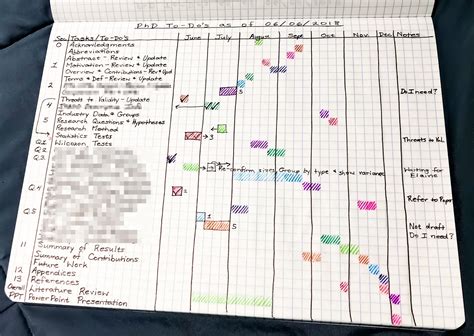 PhD To-Do's as of 06/06/2018
Sec Tasks/To-Do's June July Aug Sept Oct Nov Dec Notes
0 Acknowledgments
Abbreviations
Abstract - Review & Update
1 Motivation - Review & Update
Overview & Contributions - Rev & Upd
2 Terms & Def - Review & Update
5 Do I need?
4 Threats to Validity - Update
Industry Data & Groups
5 Research Questions & Hypotheses
Research Method
Statistics Tests 3
Q1 Wilcoxon Tests Threats to
Q2
Q3 Re-confirm sizes, Group by type & show variance Waiting for
Elaine
Q4 2
Refer to Paper
Q5
1 Not draft
5 Do I need?
11 Summary of Results
Summary of Contributions
Future Work
12 Appendices
13 References
Overall Literature Review
PPT PowerPoint Presentation